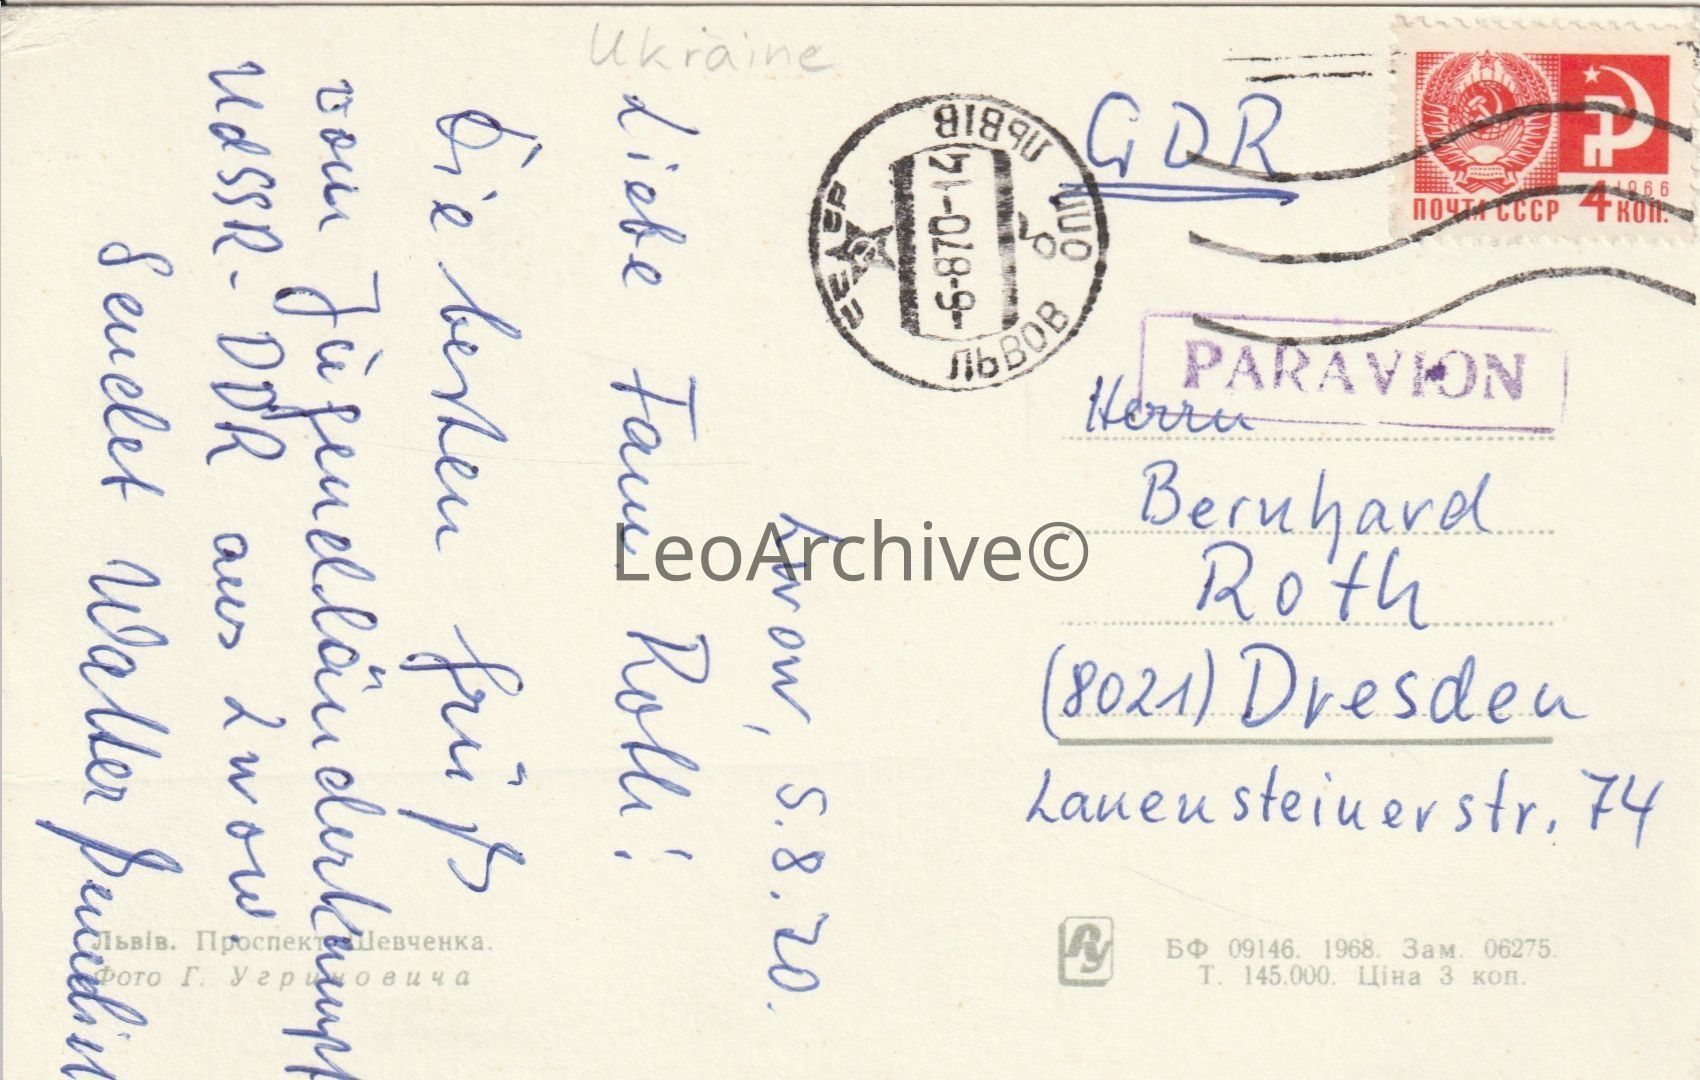 Ukraine
Lwow, 5.8.70.
Liebe Fam. Rolli!
Die besten Grüße
vom Jugendländerkampf
UdSSR-DDR aus Lwow.
Sendet Walter
GDR
ПОЧТА СССР 4 КОП.
1966
ЛЬВІВ
ЛЬВОВ
-6-870-14
PAR AVION
Herrn
Bernhard
Roth
(8021) Dresden
Lauensteinerstr. 74
LeoArchive©
Львів. Проспект Шевченка.
Фото Г. Угриновича
БФ 09146. 1968. Зам. 06275.
Т. 145.000. Ціна 3 коп.